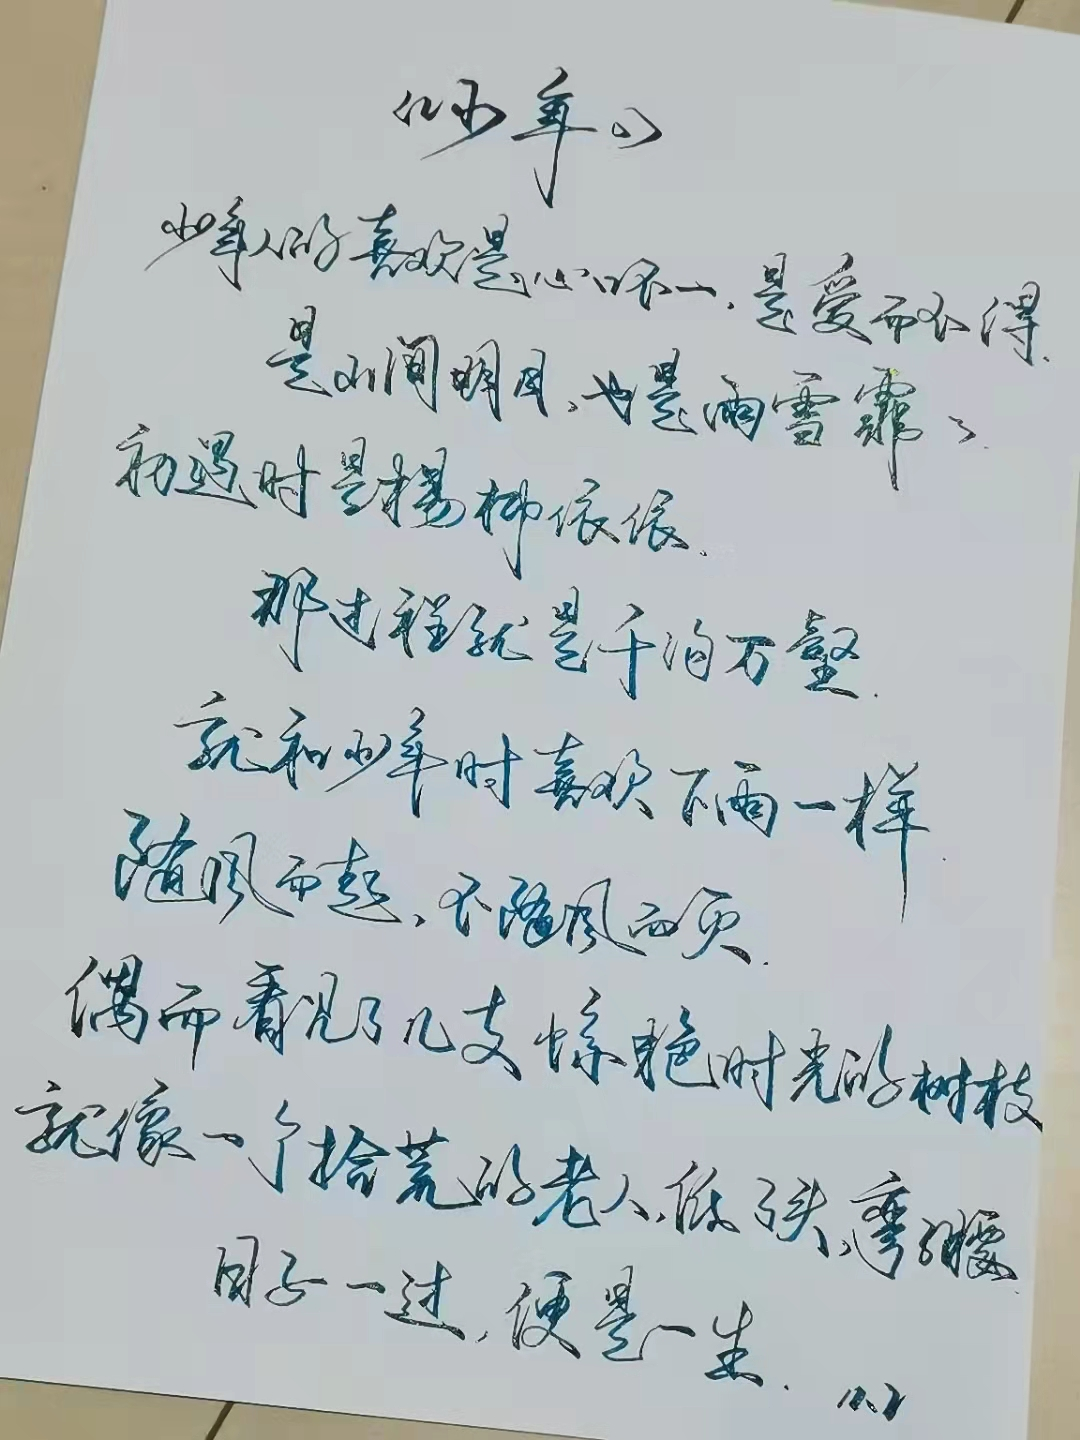 《少年》
少年人的喜欢是心口不一,是爱而不得.
是山间明月,也是雨雪霏々.
初遇时是楊柳依依.
那过程就是千沟万壑.
就和少年时喜欢下雨一样.
随风而起,不随风而
偶而看见了几支惊艳时光的树枝
就像一个拾荒的老人,低头,弯腰
日子一过,便是一生.